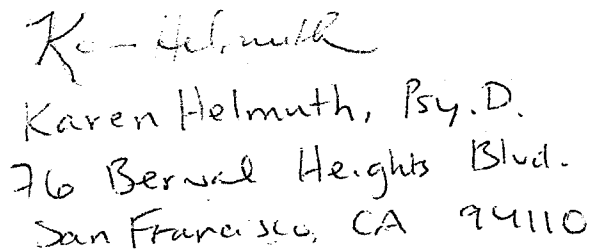 Karen Helmuth
Karen Helmuth, Psy.D.
76 Bernal Heights Blvd.
San Francisco, CA 94110